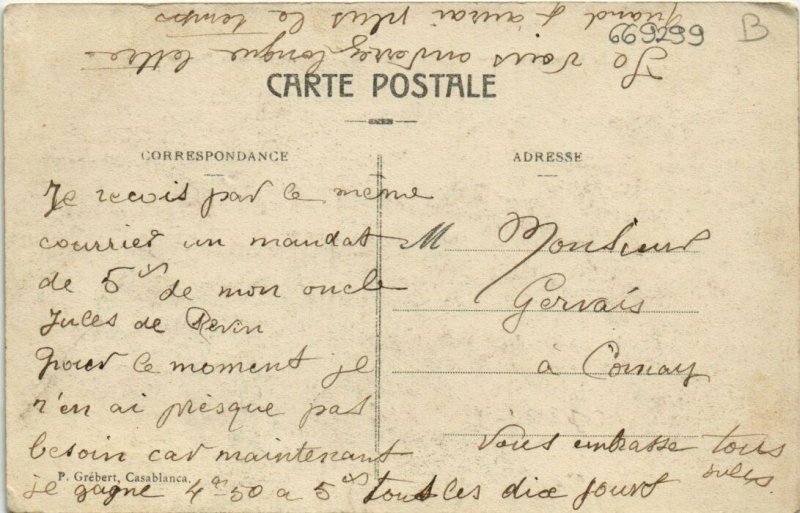 quand j'aurai plus le temps
Je vais enverrez longue lettre
669299 B
CARTE POSTALE
CORRESPONDANCE
ADRESSE
Je recois par le même
courrier un mandat
de 5 frs de mon oncle
Jules de Revin
pour le moment je
n'en ai presque pas
besoin car maintenant
je gagne 4 frs 50 a 5 frs tous les dix jours
M Monsieur
Gervais
à Cornay
Vous embrasse tous
Jules
P. Grébert, Casablanca.